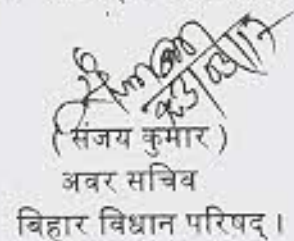 ( संजय कुमार )
अवर सचिव
बिहार विधान परिषद् ।